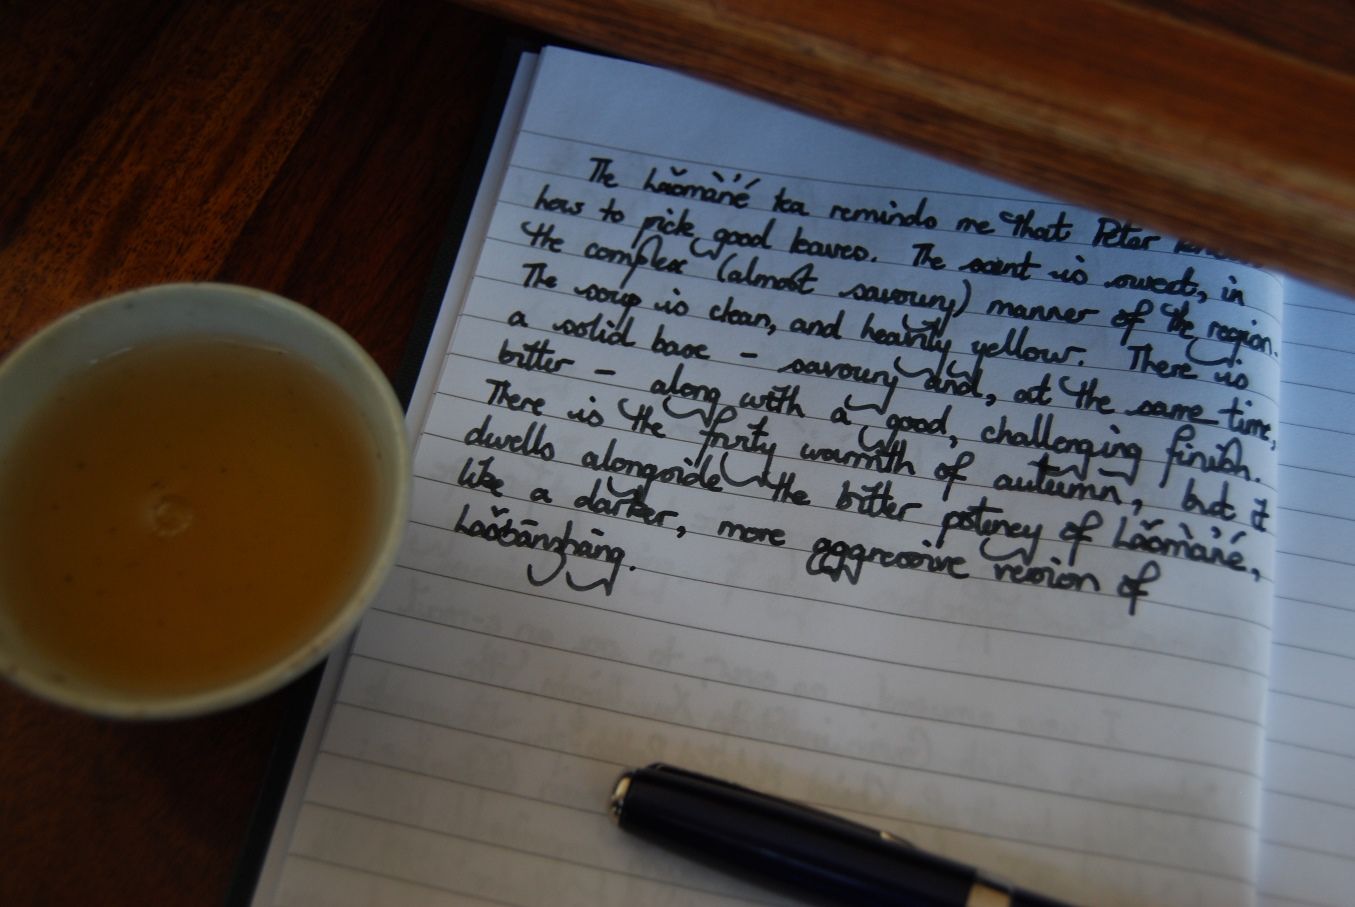 The Lǎomàn'é tea reminds me that Peter
how to pick good leaves. The scent is sweet, in
the complex (almost savoury) manner of the region.
The soup is clean, and heavily yellow. There is
a solid base – savoury and, at the same time,
bitter – along with a good, challenging finish.
There is the fruity warmth of autumn, but it
dwells alongside the bitter potency of Lǎomàn'é,
like a darker, more aggressive version of
Lǎobānzhāng.